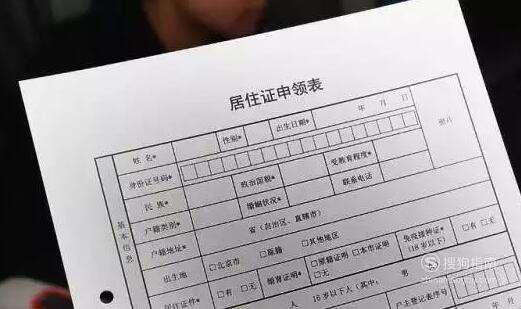 居住证申领表
姓 名* 性别* 出生日期* 年 月 日 照片
身份证号码*
民 族* 政治面貌* 受教育程度*
户籍类别* 婚姻状况* 联系电话*
基本信息
户籍地址* 省(自治区、直辖市)
出生地 □北京市 □原籍 □其他地区
居住证件* □有 □无 婚育证明* □原籍证明 □本市证明 □无 免疫接种证* (18岁以下) □有 □无
人 16岁以下人(其中: 男 户主登记表序号
年 月
搜狗指南